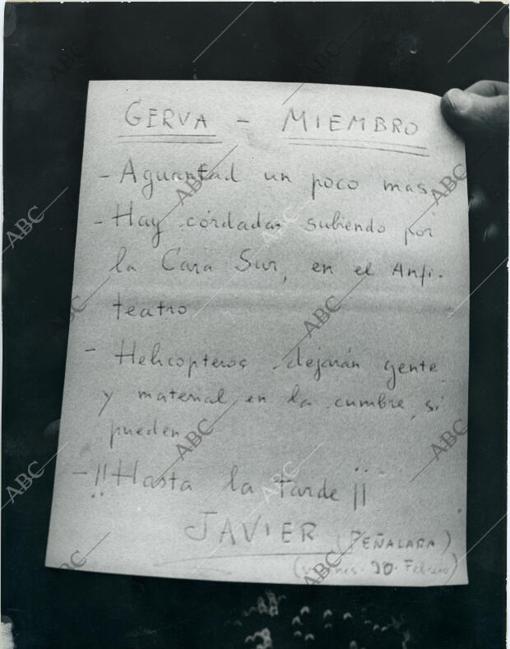 GERVA - MIEMBRO
- Aguantad un poco mas.
- Hay cordadas subiendo por
la Cara Sur, en el Anfi-
teatro
- Helicopteros dejarán gente
y material en la cumbre, si
pueden
- ¡¡Hasta la tarde!!
JAVIER (PEÑALARA)
(viernes 20 Febrero)
ABC
ABC
ABC
ABC
ABC
ABC
ABC
ABC
ABC
ABC
ABC
ABC